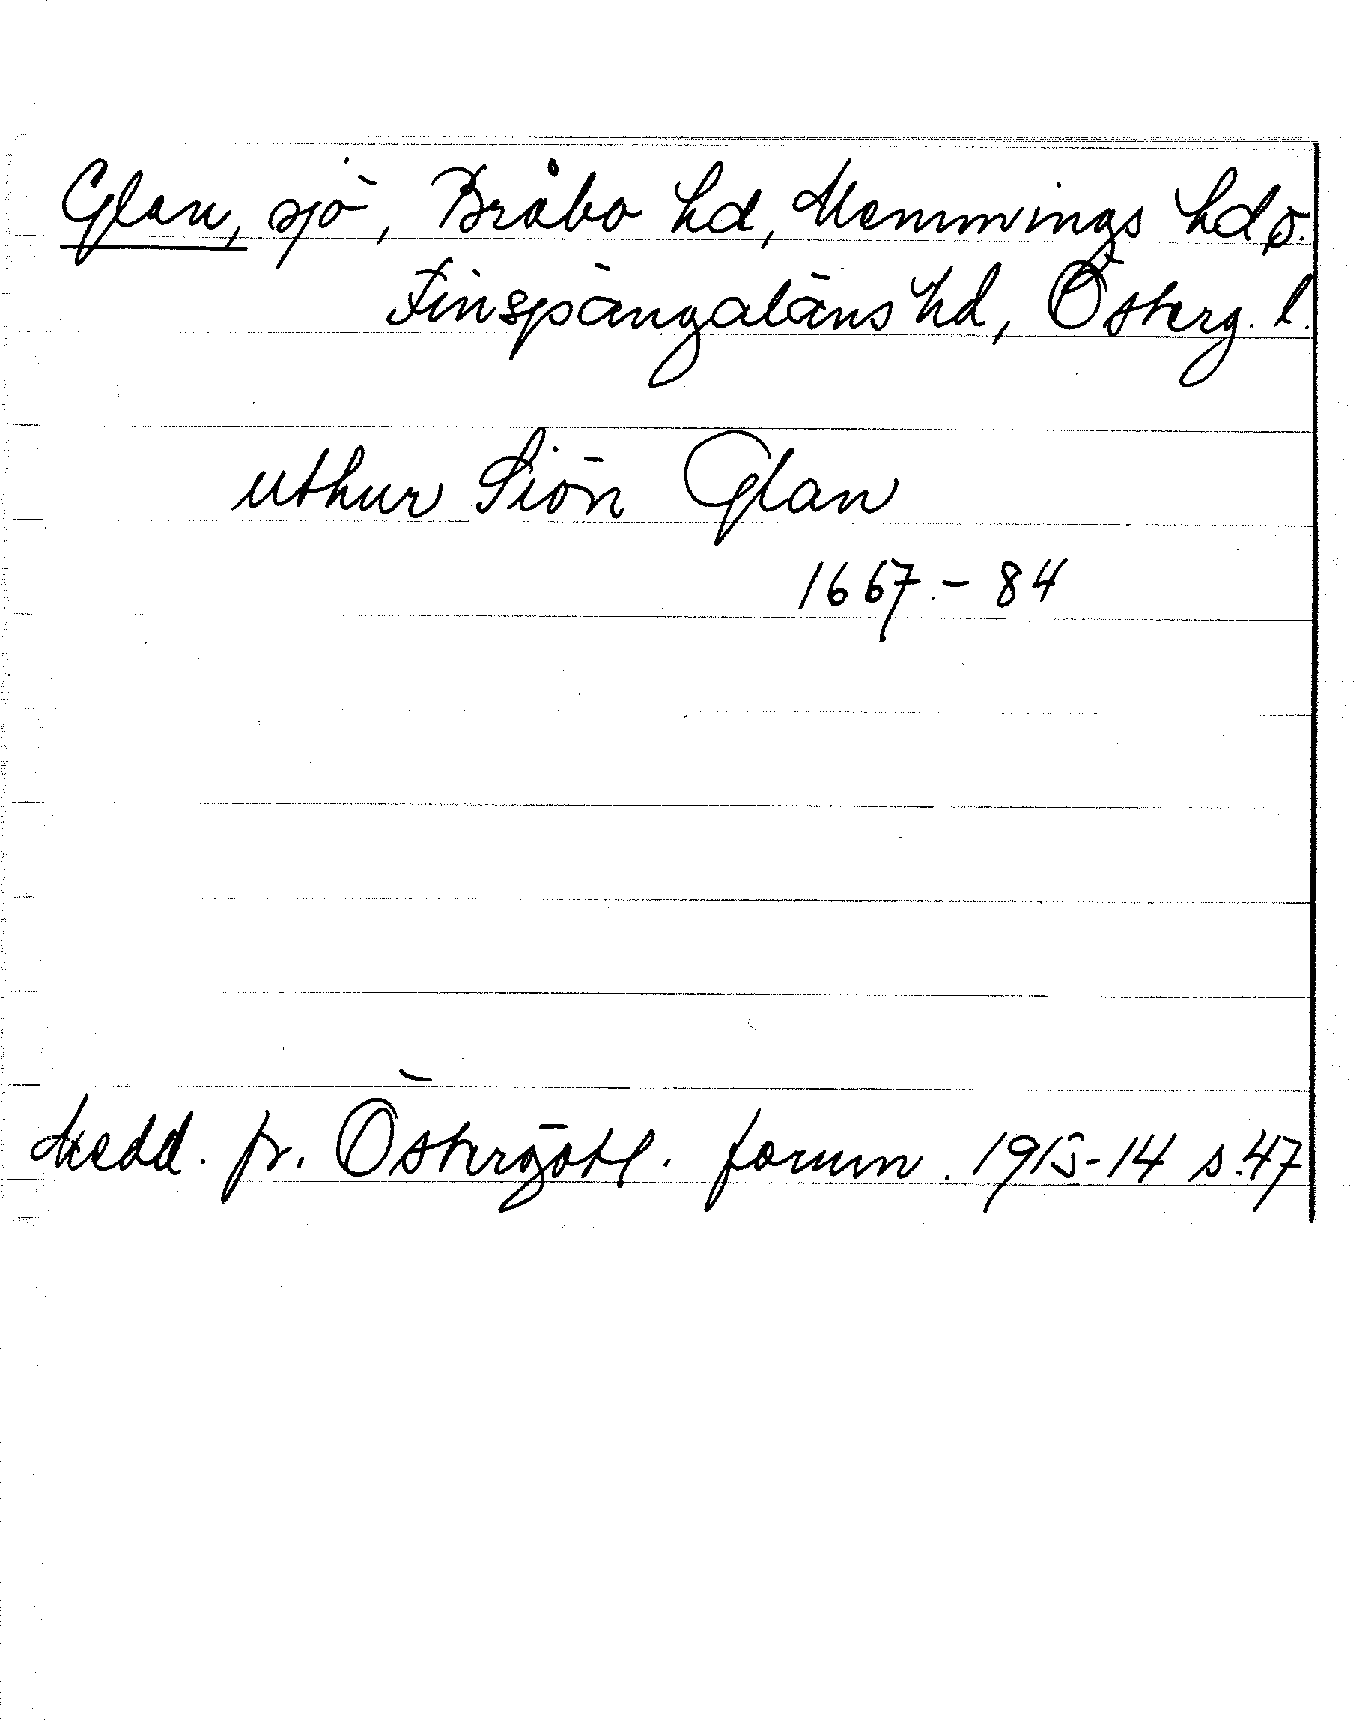 Glan, sjö, Bråbo hd, Memmings hd o.
Finspångaläns hd, Österg. l.
uthur Siön Glan
1667 - 84
Medd. fr. Östergötl. fornm. 1915-14 s.47